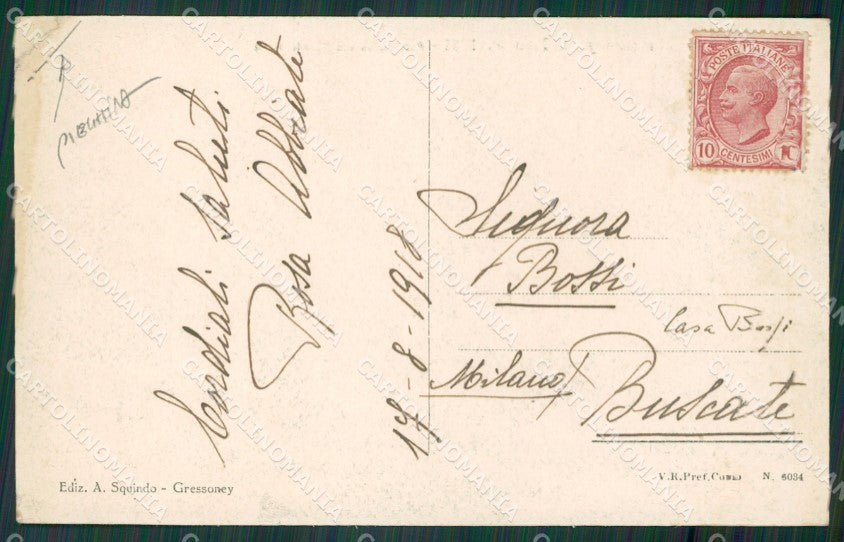 Cordiali saluti
Rosa Abbiate
17-8-1918
POSTE ITALIANE
10 CENTESIMI
Signora
Bossi
Casa Bossi
Milano
Buscate
Ediz. A. Squindo - Gressoney
V.R.Pref. Como N. 6034
CARTOLINOMANIA